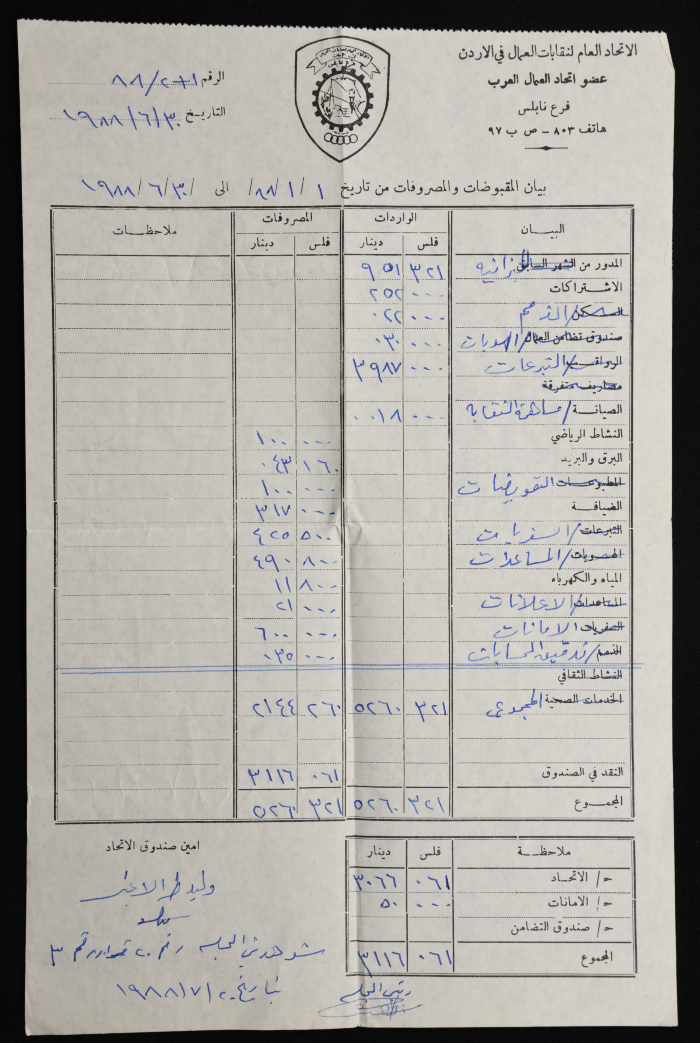 الاتحاد العام لنقابات العمال في الاردن
عضو اتحاد العمال العرب
فرع نابلس
هاتف ٨٠٣ – ص ب ٩٧
الرقم ٨٨/٢٠١
التاريخ ١٩٨٨/٦/٣٠
بيان المقبوضات والمصروفات من تاريخ ١/١/٨٨/ الى ١٩٨٨/٦/٣٠/
البيــان الواردات المصروفات ملاحظــات
فلس دينار فلس دينار
المدور من الشهر السابق ٣٢١ ٩٥١
الاشتراكات ٠٠٠ ٢٥٢
السكن / الذمم ٠٠٠ ٠٢٢
صندوق تضامن العمال ٠٠٠ ٠٣٠
الرواتب / التبرعات ٠٠٠ ٣٩٨٧
مصاريف متفرقة
الصيانــة / مساهمة النقابة ٠٠٠ ٠٠١٨
النشاط الرياضي ٠٠٠ ١٠٠
البرق والبريد ١٦٠ ٠٤٣
المطبوعات التعويضات ٠٠٠ ١٠٠
الضيافــة ٠٠٠ ٣١٧
التبرعات / السفريات ٥٠٠ ٤٢٥
الهويات / المساعدات ٨٠٠ ٤٩٠
المياه والكهرباء ٨٠٠ ١١
المساعدات / الاعلانات ٠٠٠ ٢١
السفريات الامانات ٠٠٠ ٦٠٠
الذمم / تدقيق الحسابات ٠٠٠ ٠٣٥
النشاط الثقافي
الخدمات الصحية المجموع ٣٢١ ٥٢٦٠ ٢٦٠ ٢١٤٤
النقد في الصندوق ٠٦١ ٣١١٦
المجمــوع ٣٢١ ٥٢٦٠ ٣٢١ ٥٢٦٠
ملاحظــة فلس دينار
ح/ الاتحاد ٠٦١ ٣٠٦٦
ح/ الامانات ٠٠٠ ٥٠
ح/ صندوق التضامن
المجموع ٠٦١ ٣١١٦
امين صندوق الاتحاد
شوهد في الجلسه رقم ٢٠ قرار رقم ٣
بتاريخ ١٩٨٨/٧/٢٠
رئيس الجلسه